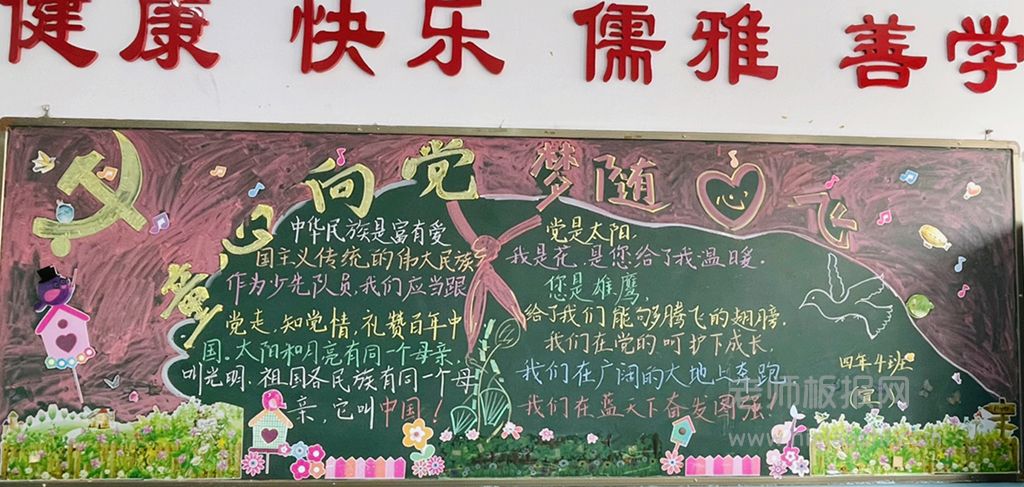 健康 快乐 儒雅 善学
童心向党 梦随心飞
中华民族是富有爱
国主义传统的伟大民族
作为少先队员,我们应当跟
党走,知党情,礼赞百年中
国。太阳和月亮有同一个母亲,
叫光明。祖国各民族有同一个母
亲,它叫中国!
党是太阳.
我是花,是您给了我温暖.
您是雄鹰,
给了我们能够腾飞的翅膀.
我们在党的呵护下成长.
我们在广阔的大地上奔跑
我们在蓝天下奋发图强
四年4班
宣
老师板报网